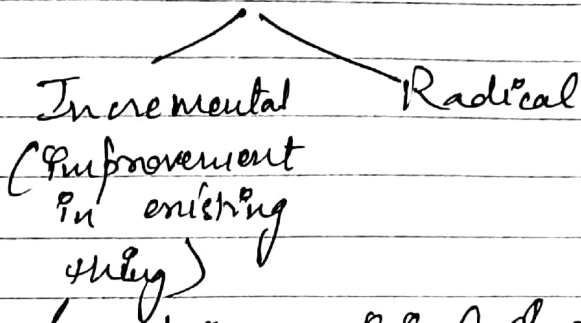 Incremental Radical
(improvement
in existing
thing)